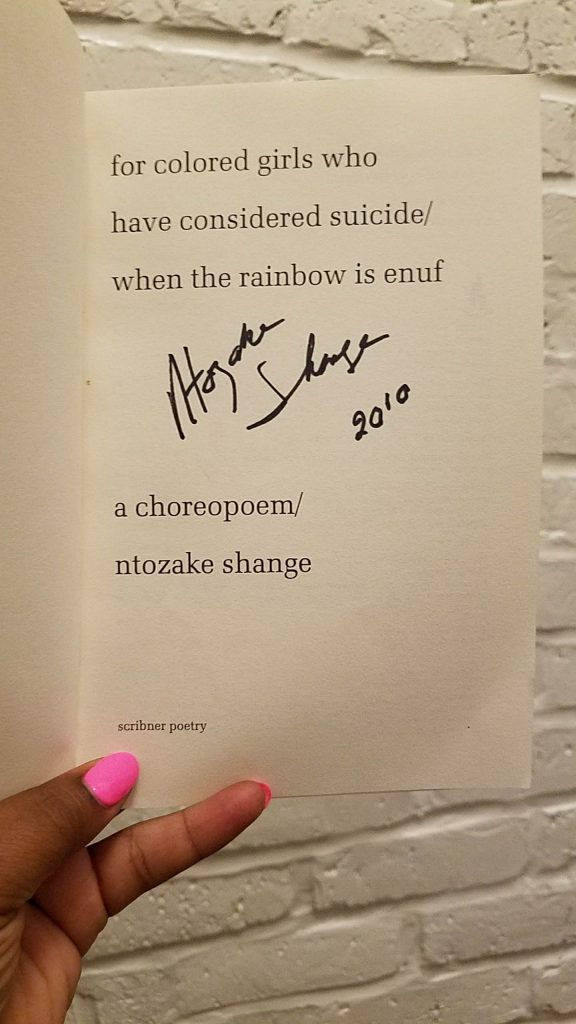 for colored girls who
have considered suicide/
when the rainbow is enuf
Ntozake Shange
2010
a choreopoem/
ntozake shange
scribner poetry